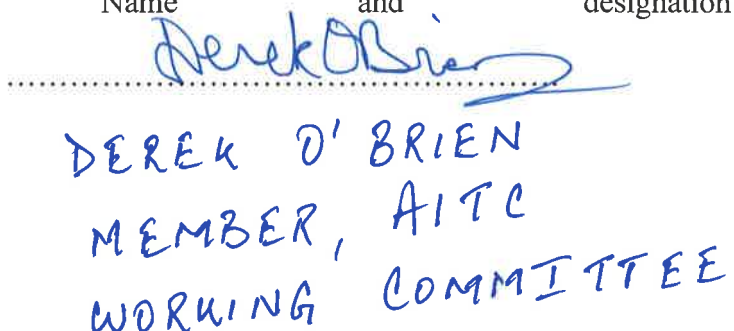 Name and designation
Derek O Brien
DEREK O' BRIEN
MEMBER, AITC
WORKING COMMITTEE